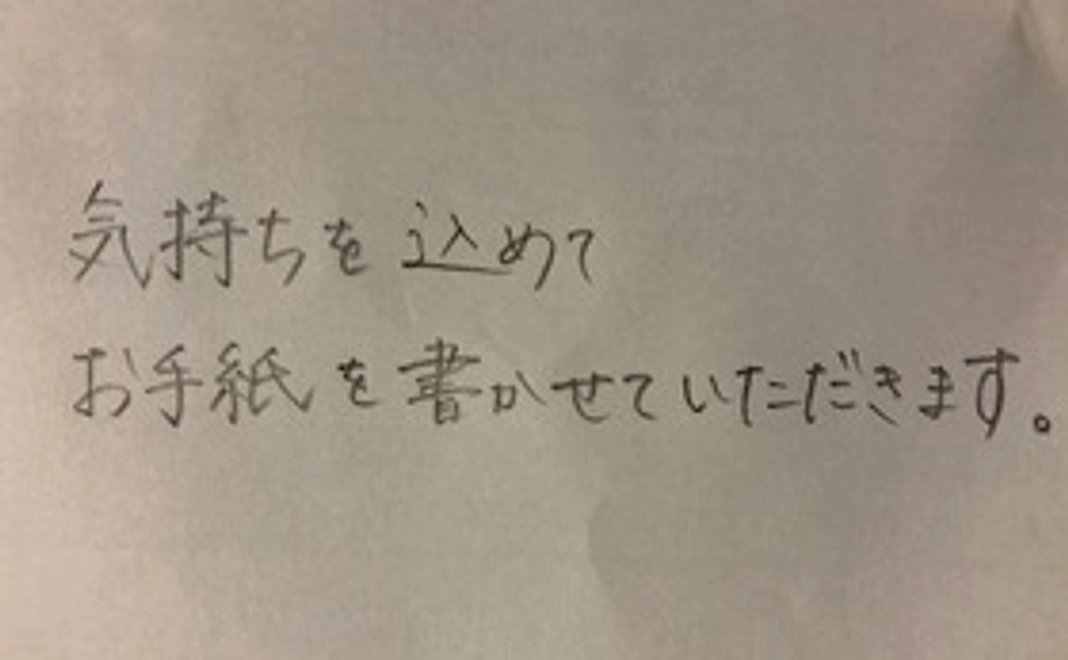 気持ちを込めて
お手紙を書かせていただきます。